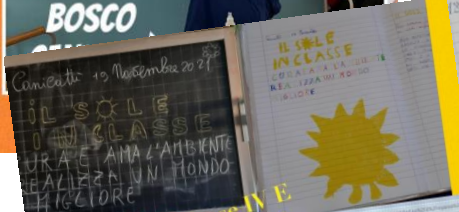 BOSCO
Canicattì 19 Novembre 2021
IL SOLE
IN CLASSE
CURA E AMA L'AMBIENTE
REALIZZA UN MONDO
MIGLIORE
IL SOLE
IN CLASSE
CURA E AMA L'AMBIENTE
REALIZZA UN MONDO
MIGLIORE
IV E